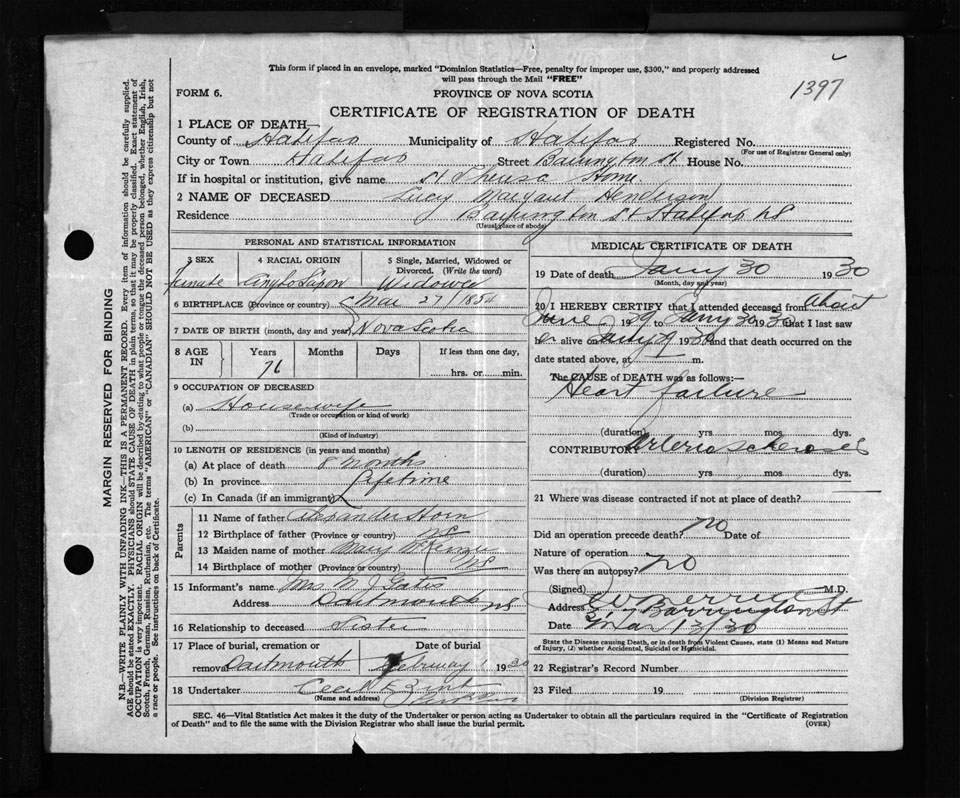 This form if placed in an envelope, marked "Dominion Statistics—Free, penalty for improper use, $300," and properly addressed
will pass through the Mail "FREE"
1397
FORM 6.
PROVINCE OF NOVA SCOTIA
CERTIFICATE OF REGISTRATION OF DEATH
1 PLACE OF DEATH—
County of Halifax Municipality of Halifax Registered No.
(For use of Registrar General only)
City or Town Halifax Street Barrington St House No.
If in hospital or institution, give name St Theresa Home.
2 NAME OF DECEASED Lucy Margaret Henderson
Residence Barrington St Halifax NS
(Usual place of abode)
PERSONAL AND STATISTICAL INFORMATION
3 SEX 4 RACIAL ORIGIN 5 Single, Married, Widowed or Divorced. (Write the word)
female Anglo Saxon Widowed
6 BIRTHPLACE (Province or country) Mar 27/1854
7 DATE OF BIRTH (month, day and year) Nova Scotia
8 AGE IN Years Months Days If less than one day,
76 hrs. or min.
9 OCCUPATION OF DECEASED
(a) Housewife
(Trade or occupation or kind of work)
(b)
(Kind of industry)
10 LENGTH OF RESIDENCE (in years and months)
(a) At place of death 8 months
(b) In province lifetime
(c) In Canada (if an immigrant)
Parents
11 Name of father Alexander Horn
12 Birthplace of father (Province or country)
13 Maiden name of mother Mary
14 Birthplace of mother (Province or country) NS
15 Informant's name Mrs M J Gates
Address Dartmouth NS
16 Relationship to deceased Sister
17 Place of burial, cremation or removal Dartmouth
Date of burial February 1 1930
18 Undertaker Cecil E Zink
(Name and address) Dartmouth
MEDICAL CERTIFICATE OF DEATH
19 Date of death Jany 30 1930
(Month, day and year)
20 I HEREBY CERTIFY that I attended deceased from About
June 1929 to Jany 30 1930 that I last saw
er alive Jany 29 1930 and that death occurred on the
date stated above, at m.
The CAUSE of DEATH was as follows:—
Heart failure
(duration) yrs. mos. dys.
CONTRIBUTORY Arterio sclerosis
(duration) yrs. mos. dys.
21 Where was disease contracted if not at place of death?
Did an operation precede death? no Date of
Nature of operation
Was there an autopsy? no
(Signed) M.D.
Address Barrington St
Date Mar 13/30
State the Disease causing Death, or in death from Violent Causes, state (1) Means and Nature
of Injury, (2) whether Accidental, Suicidal or Homicidal.
22 Registrar's Record Number
23 Filed 19
(Division Registrar)
SEC. 46—Vital Statistics Act makes it the duty of the Undertaker or person acting as Undertaker to obtain all the particulars required in the "Certificate of Registration
of Death" and to file the same with the Division Registrar who shall issue the burial permit. (OVER)
MARGIN RESERVED FOR BINDING
N.B.—WRITE PLAINLY WITH UNFADING INK—THIS IS A PERMANENT RECORD. Every item of information should be carefully supplied.
AGE should be stated EXACTLY. PHYSICIANS should STATE CAUSE OF DEATH in plain terms, so that it may be properly classified. Exact statement of
OCCUPATION is very important. RACIAL ORIGIN will be described by stating to what people or tongue the deceased person belonged, whether English, Irish,
Scotch, French, German, Russian, Ruthenian, etc. The terms "AMERICAN" or "CANADIAN" SHOULD NOT BE USED as they express citizenship but not
a race or people. See instructions on back of Certificate.